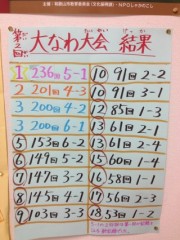 主催：和歌山市教育委員会（文化振興課）・NPOしゃかのこし
第2回 大なわ大会 結果
1 236回 5-1
2 201回 4-3
3 200回 4-2
3 200回 6-1
5 153回 6-2
6 149回 5-2
7 147回 3-2
8 145回 4-1
9 103回 3-3
10 91回 2-2
10 91回 2-3
12 85回 1-3
13 61回 2-1
13 61回 2-4
15 60回 1-4
16 58回 1-1
17 56回 2-3
18 53回 1-2